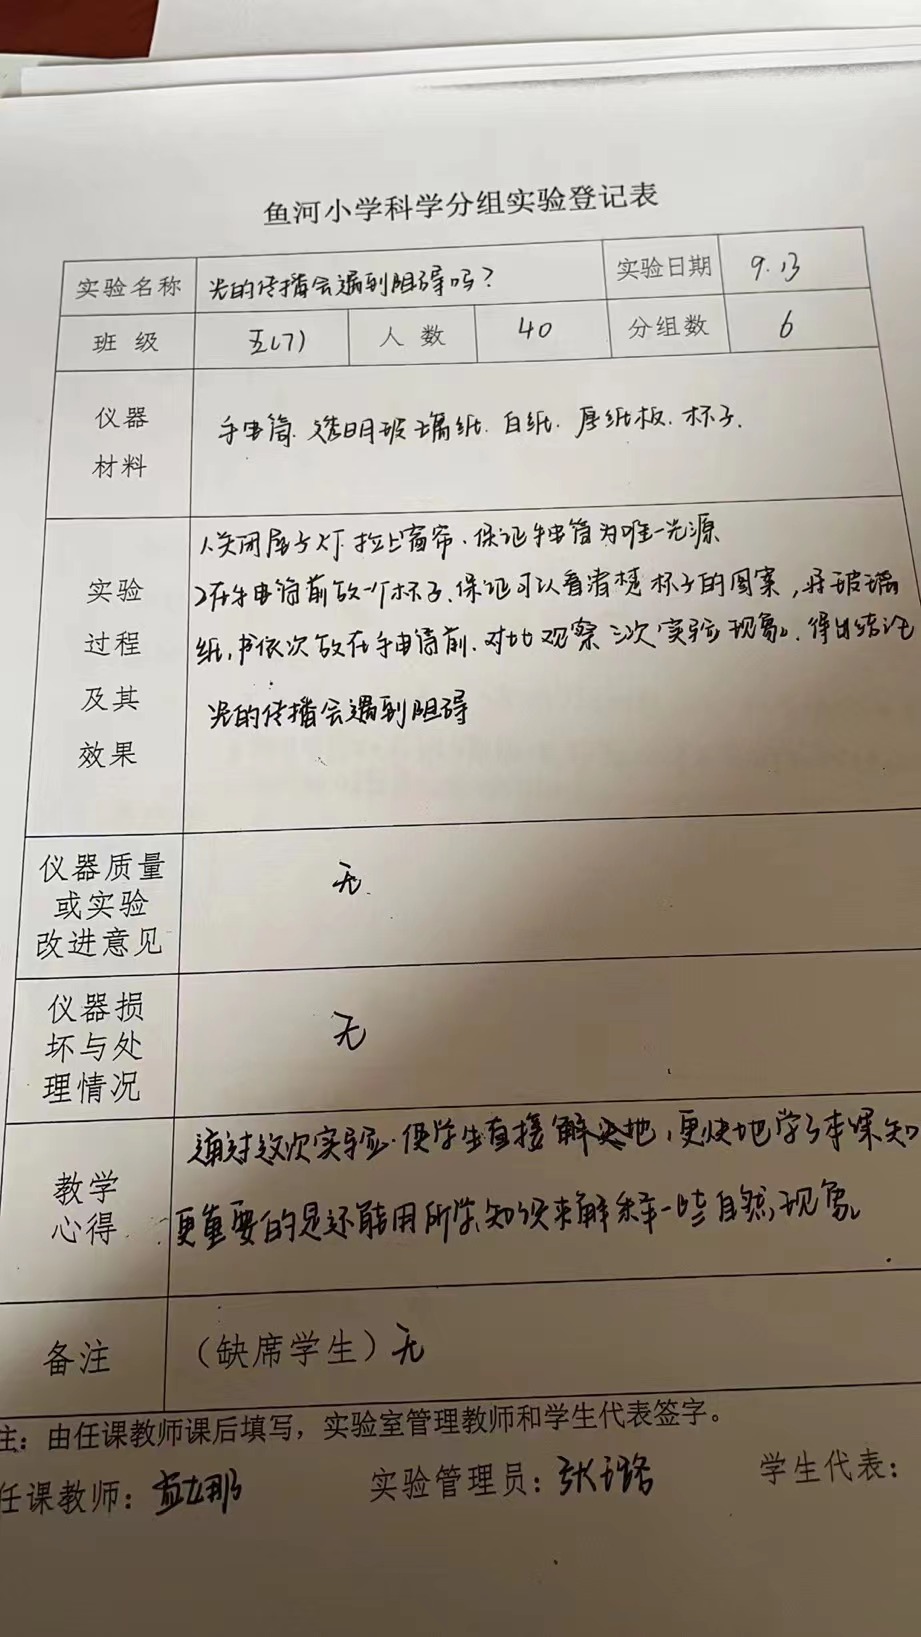 鱼河小学科学分组实验登记表
实验名称 光的传播会遇到阻碍吗？ 实验日期 9.13
班 级 五(7) 人 数 40 分组数 6
仪器
材料
手电筒. 透明玻璃纸. 白纸. 厚纸板. 杯子.
实验
过程
及其
效果
1关闭屋子灯. 拉上窗帘. 保证手电筒为唯一光源
2在手电筒前放一个杯子. 保证可以看清楚杯子的图案，将玻璃
纸, 依次放在手电筒前. 对比观察三次实验现象. 得出结论
光的传播会遇到阻碍
仪器质量
或实验
改进意见
无.
仪器损
坏与处
理情况
无
教学
心得
通过这次实验. 使学生直接 地, 更快地学习本课知
更重要的是还能用所学知识来解释一些自然现象.
备注 （缺席学生）无
注：由任课教师课后填写，实验室管理教师和学生代表签字。
任课教师： 实验管理员：张璐 学生代表：